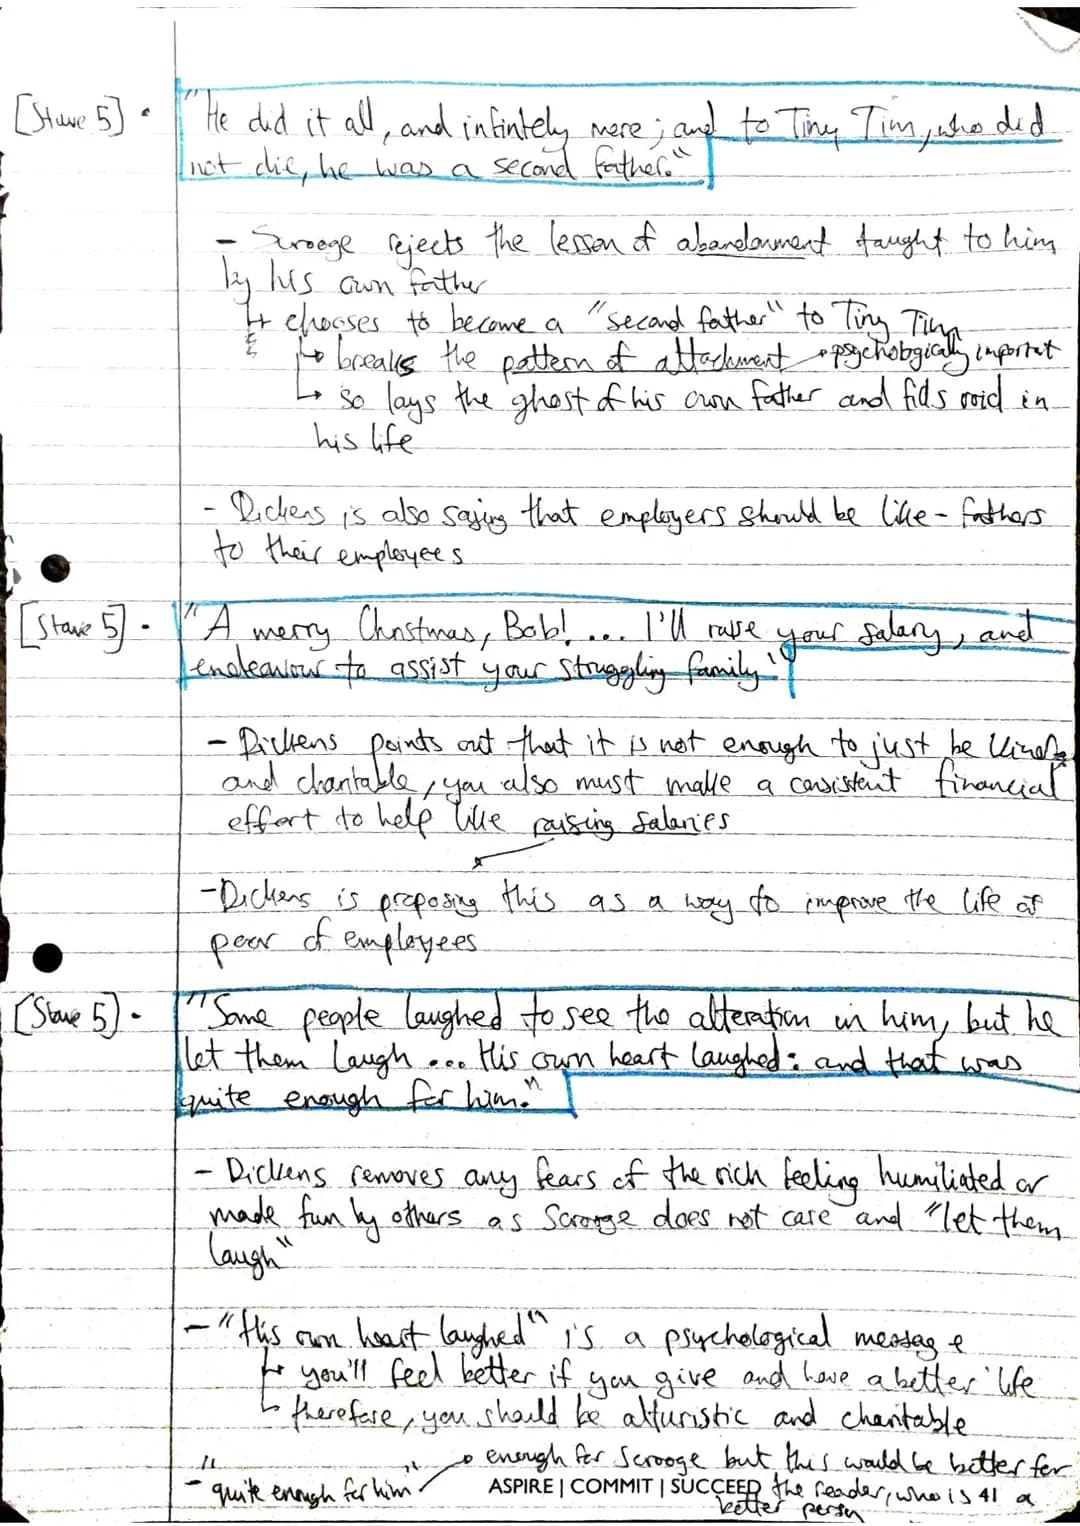 [Stave 5] • "He did it all, and infintely more; and to Tiny Tim, who did
not die, he was a second father."
- Scrooge rejects the lesson of abandonment taught to him
by his own father
↳ chooses to become a "second father" to Tiny Tim
↳ breaks the pattern of attachment → psychologically importat
↳ so lays the ghost of his own father and fills void in
his life
- Dickens is also saying that employers should be like - fathers
to their employees
[Stave 5] • "A merry Christmas, Bob! ... I'll raise your salary, and
endeavour to assist your struggling family"
- Dickens points out that it is not enough to just be kind
and charitable, you also must make a consistent financial
effort to help like raising salaries
- Dickens is proposing this as a way to improve the life of
poor of employees
[Stave 5] • "Some people laughed to see the alteration in him, but he
let them laugh ... His own heart laughed: and that was
quite enough for him."
- Dickens removes any fears of the rich feeling humiliated or
made fun by others as Scrooge does not care and "let them
laugh"
- "His own heart laughed" is a psychological message
↳ you'll feel better if you give and have a better life
↳ therefore, you should be alturistic and charitable
- "quite enough for him" → enough for Scrooge but this would be better for
the reader, who is a
better person
ASPIRE | COMMIT | SUCCEED